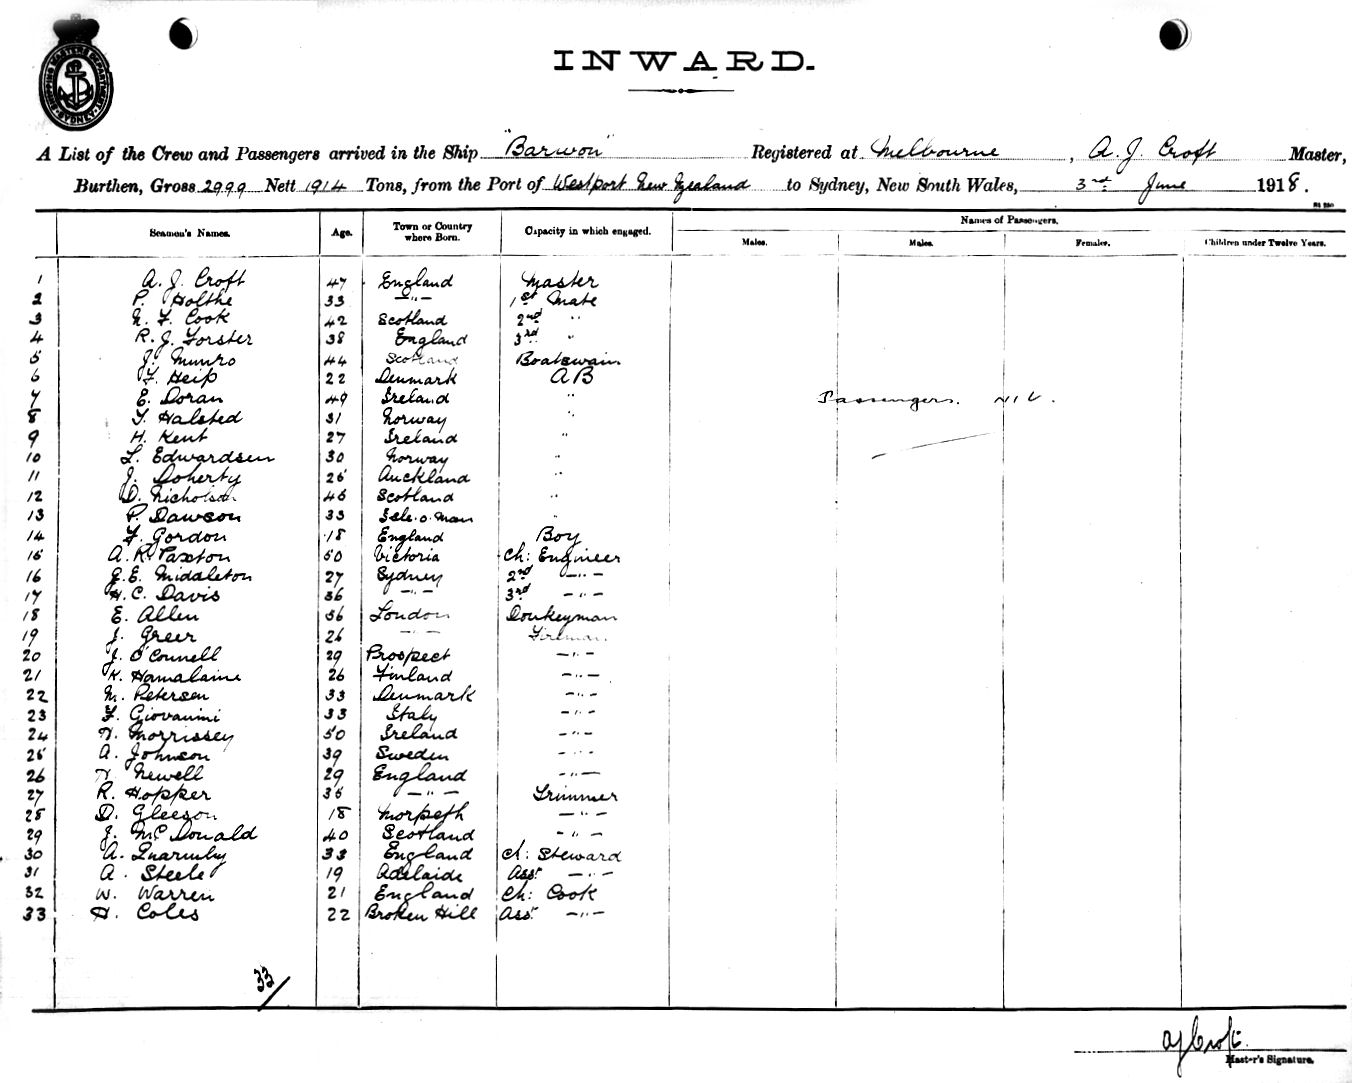 SHIPPING MASTER'S DEPARTMENT SYDNEY
INWARD.
A List of the Crew and Passengers arrived in the Ship "Barwon" Registered at Melbourne, A. J. Croft Master,
Burthen, Gross 2999 Nett 1914 Tons, from the Port of Westport New Zealand to Sydney, New South Wales, 3rd June 1918.
Names of Passengers.
Seamen's Names. Age. Town or Country where Born. Capacity in which engaged. Males. Males. Females. Children under Twelve Years.
1 A. J. Croft 47 England Master
2 P. Holthe 33 —"— 1st Mate
3 N. F. Cook 42 Scotland 2nd "
4 R. J. Forster 38 England 3rd "
5 J. Munro 44 Scotland Boatswain
6 F. Heip 22 Denmark AB
7 E. Doran 49 Ireland " Passengers. NIL.
8 T. Halsted 31 Norway "
9 H. Kent 27 Ireland "
10 L. Edwardsen 30 Norway "
11 J. Doherty 26 Auckland "
12 D. Nicholson 46 Scotland "
13 P. Dawson 33 Isle.o.Man "
14 F. Gordon 18 England Boy
15 A. R. Paxton 50 Victoria Ch: Engineer
16 G. E. Middleton 27 Sydney 2nd —"—
17 H. C. Davis 36 —"— 3rd —"—
18 E. Allen 56 London Donkeyman
19 J. Greer 26 —"— Fireman
20 J. O'Connell 29 Prospect —"—
21 K. Hamalaine 26 Finland —"—
22 M. Petersen 33 Denmark —"—
23 F. Giovanini 33 Italy —"—
24 Morrissey 50 Ireland —"—
25 A. Johnson 39 Sweden —"—
26 Newell 29 England —"—
27 R. Hopper 36 —"— Trimmer
28 D. Gleeson 18 Morpeth —"—
29 J. McDonald 40 Scotland —"—
30 A. Quarmby 33 England Ch: Steward
31 A. Steele 19 Adelaide Asst —"—
32 W. Warren 21 England Ch: Cook
33 H. Coles 22 Broken Hill Asst —"—
33/
AJCroft.
Master's Signature.